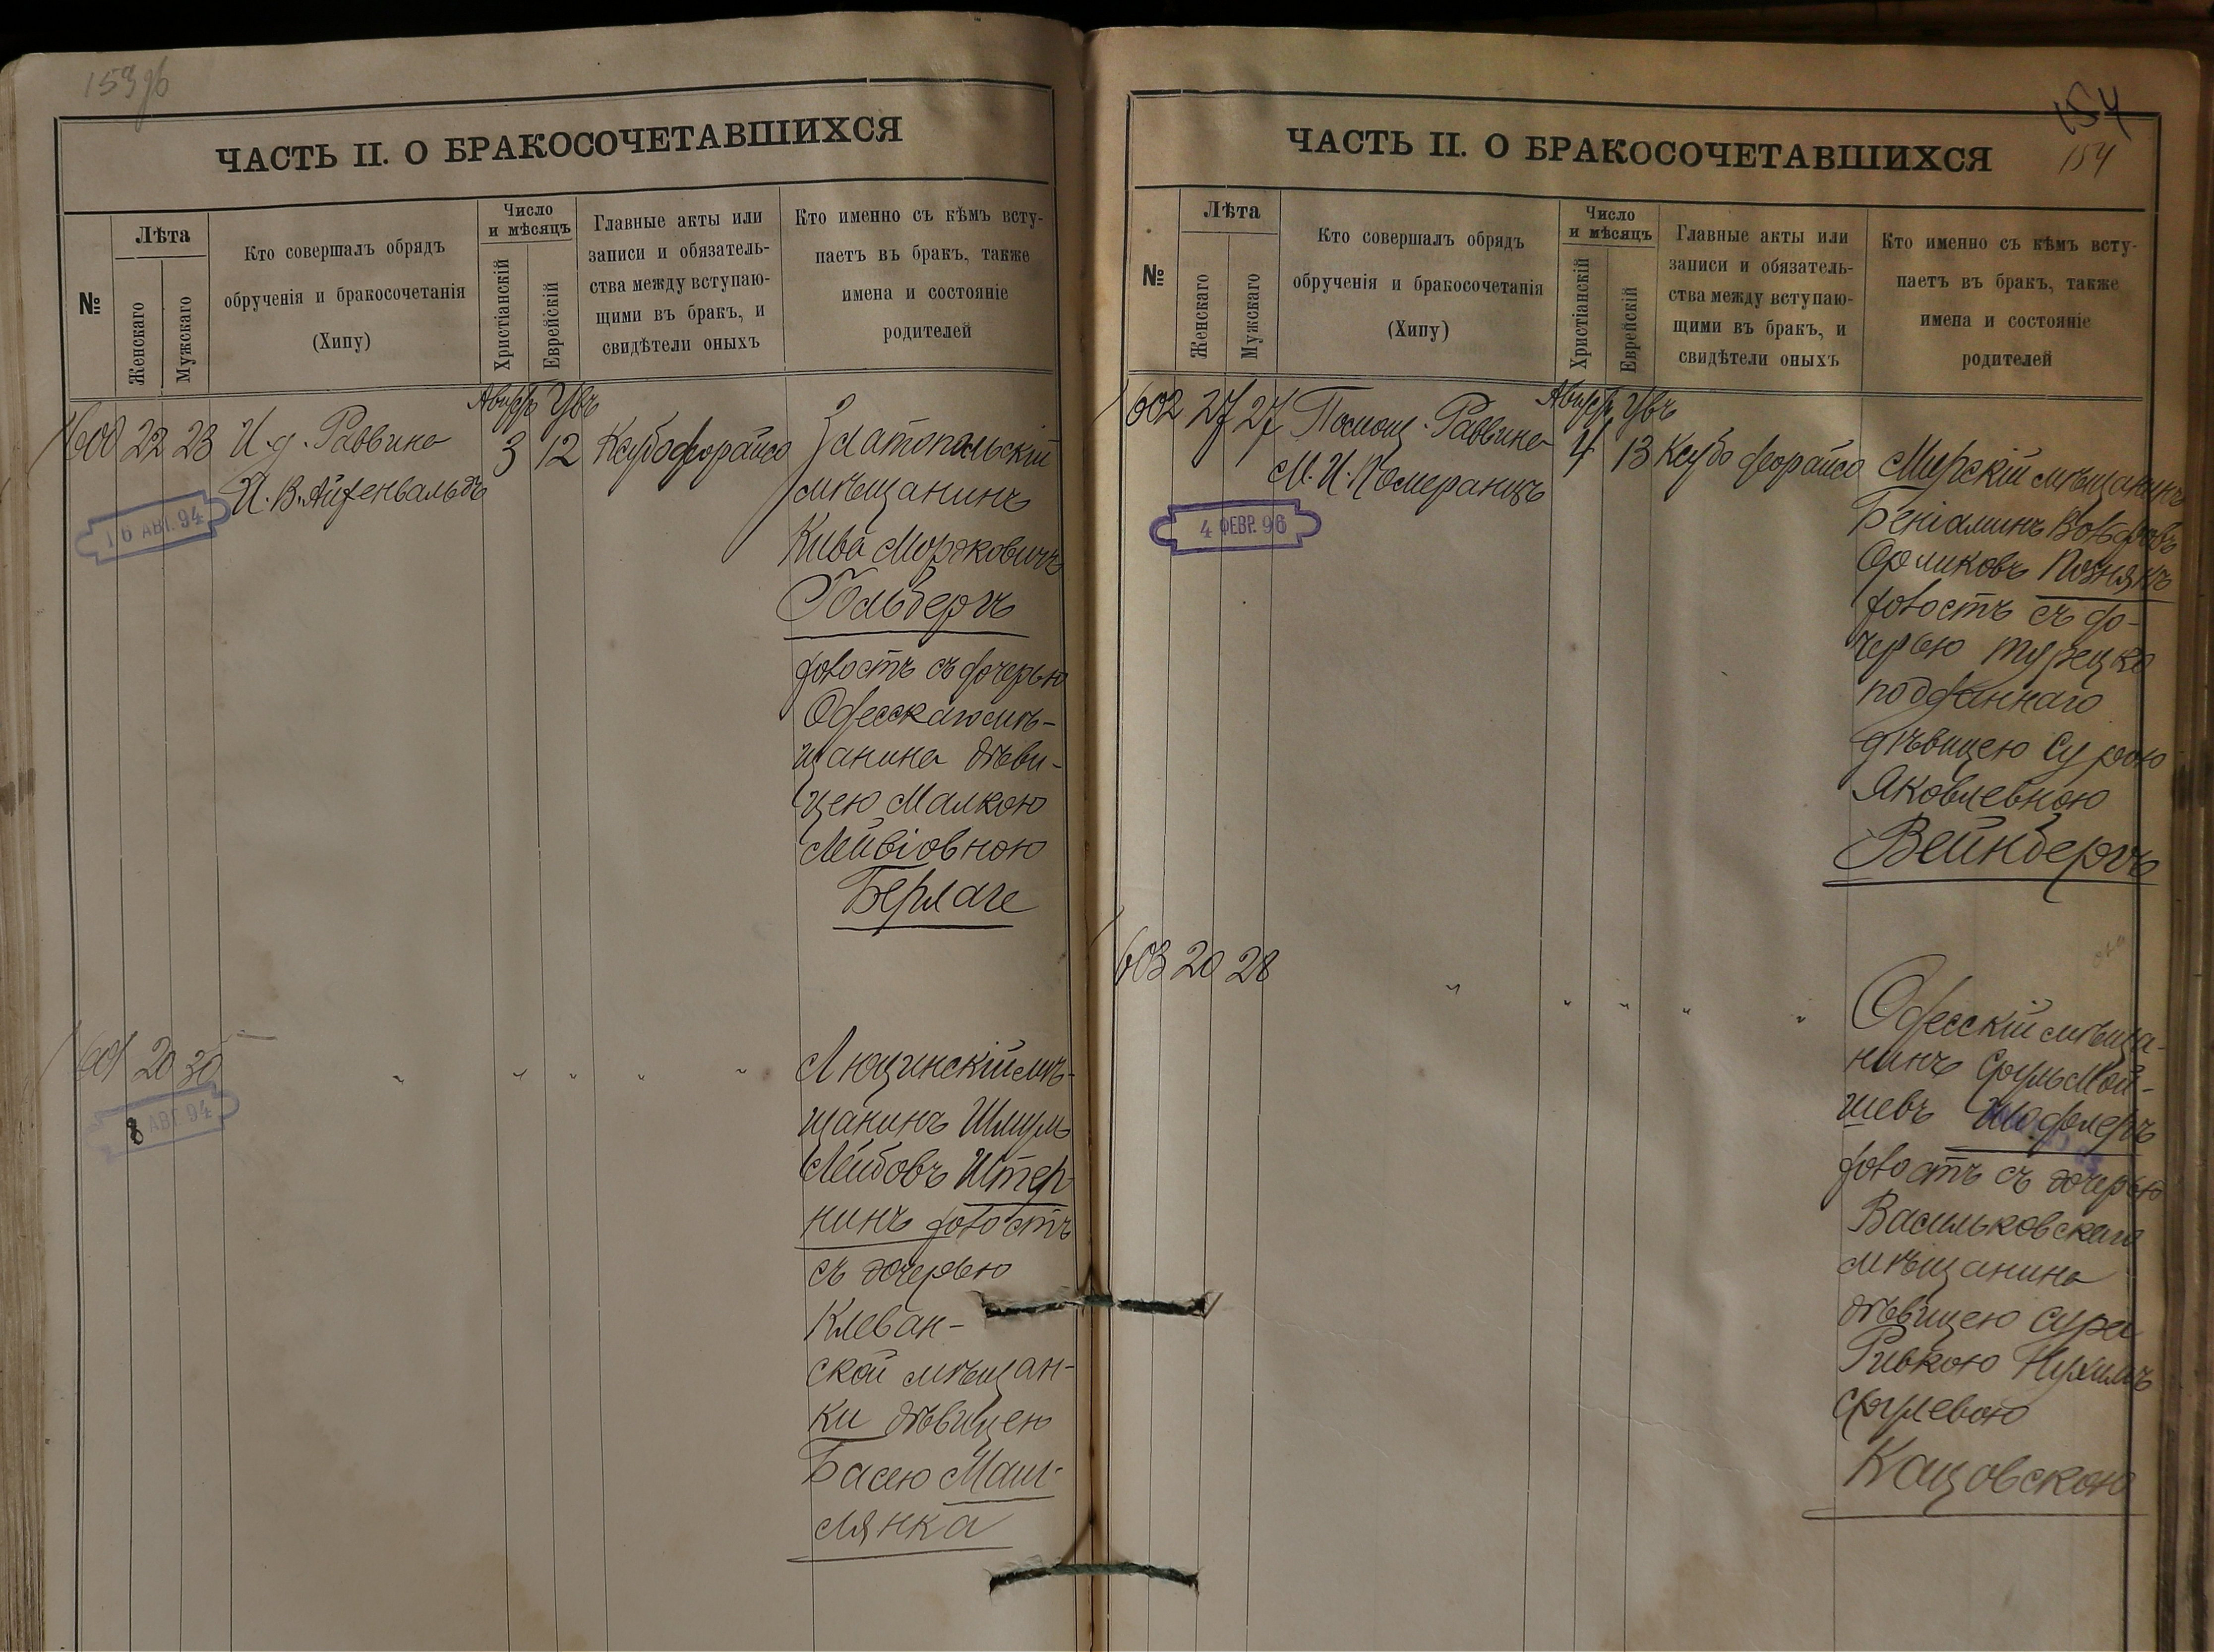 153 об
ЧАСТЬ II. О БРАКОСОЧЕТАВШИХСЯ
№
Лѣта
Женскаго
Мужскаго
Кто совершалъ обрядъ
обрученія и бракосочетанія
(Хипу)
Число
и мѣсяцъ
Христіанскій
Еврейскій
Главные акты или
записи и обязатель-
ства между вступаю-
щими въ бракъ, и
свидѣтели оныхъ
Кто именно съ кѣмъ всту-
паетъ въ бракъ, также
имена и состояніе
родителей
600 22 23 И. д. Раввина
И. В. Айзенвальдъ
16 АВГ. 94
3 12
Златопольскій
мѣщанинъ
Кива Моржковичъ
Гольбергъ
холостъ съ дочерью
Одесскаго мѣ-
щанина дѣви-
цею Малкою
Лейвіовною
Берлаче
601 20 30 " " " " "
8 АВГ. 94
Люцинскій мѣ-
щанинъ Шмуль
Лейбовъ Штер-
нинъ холостъ
съ дочерью
Клеван-
ской мѣщан-
ки дѣвицею
Басею Маш-
лянка
154
154
ЧАСТЬ II. О БРАКОСОЧЕТАВШИХСЯ
№
Лѣта
Женскаго
Мужскаго
Кто совершалъ обрядъ
обрученія и бракосочетанія
(Хипу)
Число
и мѣсяцъ
Христіанскій
Еврейскій
Главные акты или
записи и обязатель-
ства между вступаю-
щими въ бракъ, и
свидѣтели оныхъ
Кто именно съ кѣмъ всту-
паетъ въ бракъ, также
имена и состояніе
родителей
602 27 27 Помощ. Раввина
М. И. Померанцъ
4 ФЕВР. 96
4 13
Мирскій мѣщанинъ
Беніаминъ Вольфовъ
Сроликовъ Познякъ
холостъ съ до-
черью турецко
подданнаго
дѣвицею Сурою
Яковлевною
Вейнбергъ
603 20 28 " " " " "
Одесскій мѣща-
нинъ Сруль Мой-
шевъ Шодлеръ
холостъ съ дочерью
Васильковскаго
мѣщанина
дѣвицею Сура
Ривкою Нухимъ
Срулевою
Кацовскою